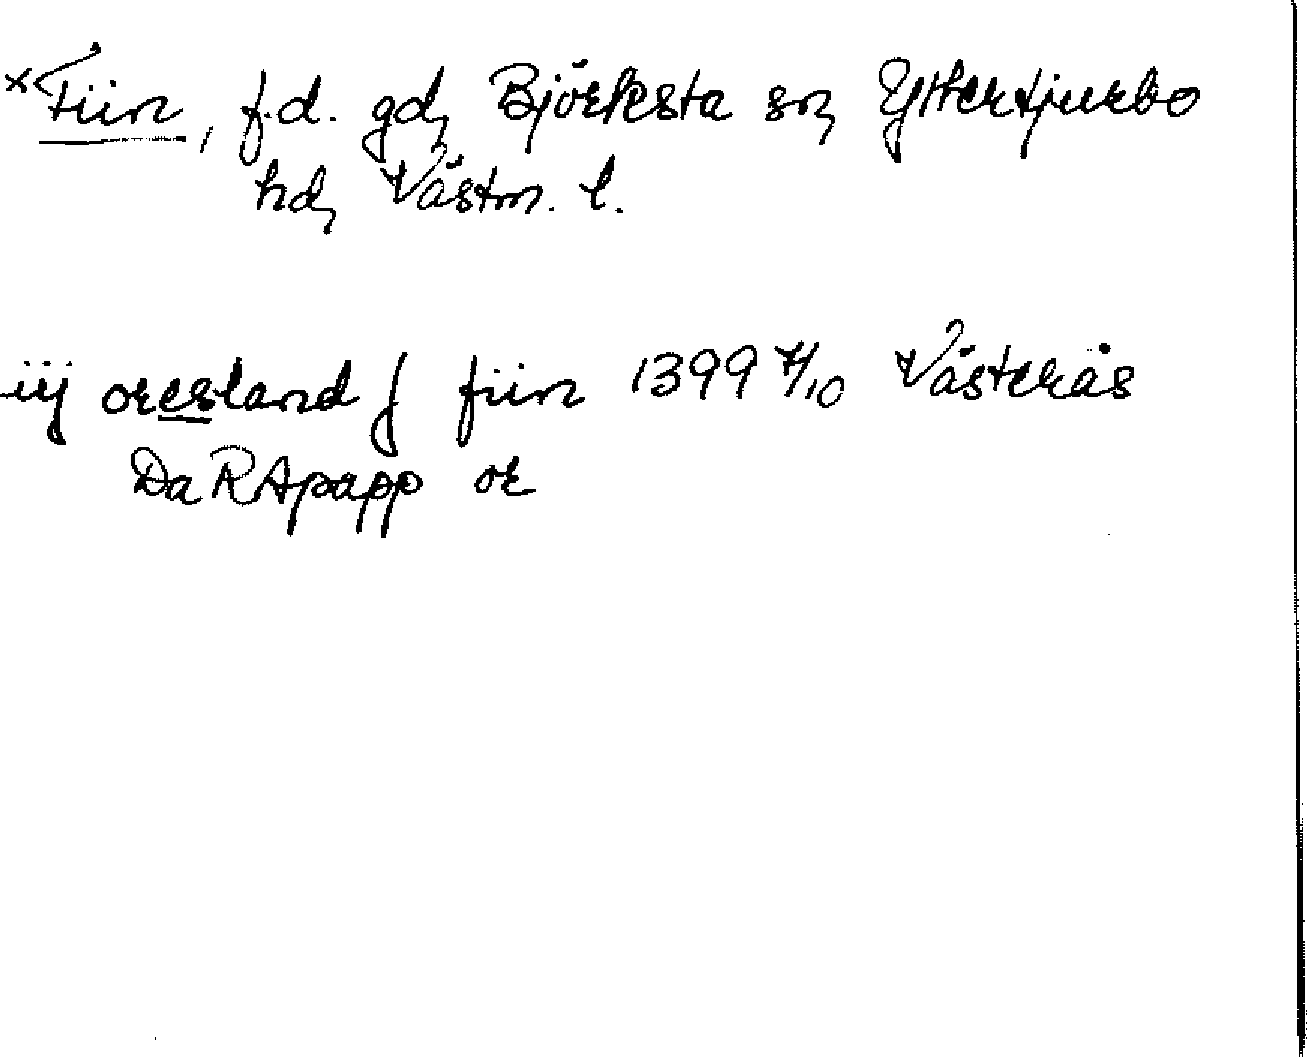 ×Fiin, f.d. gd, Björksta sn, Yttertjurbo
hd, Västm. l.
iij oresland j fiin 1399 7/10 Västerås
Da RApapp or